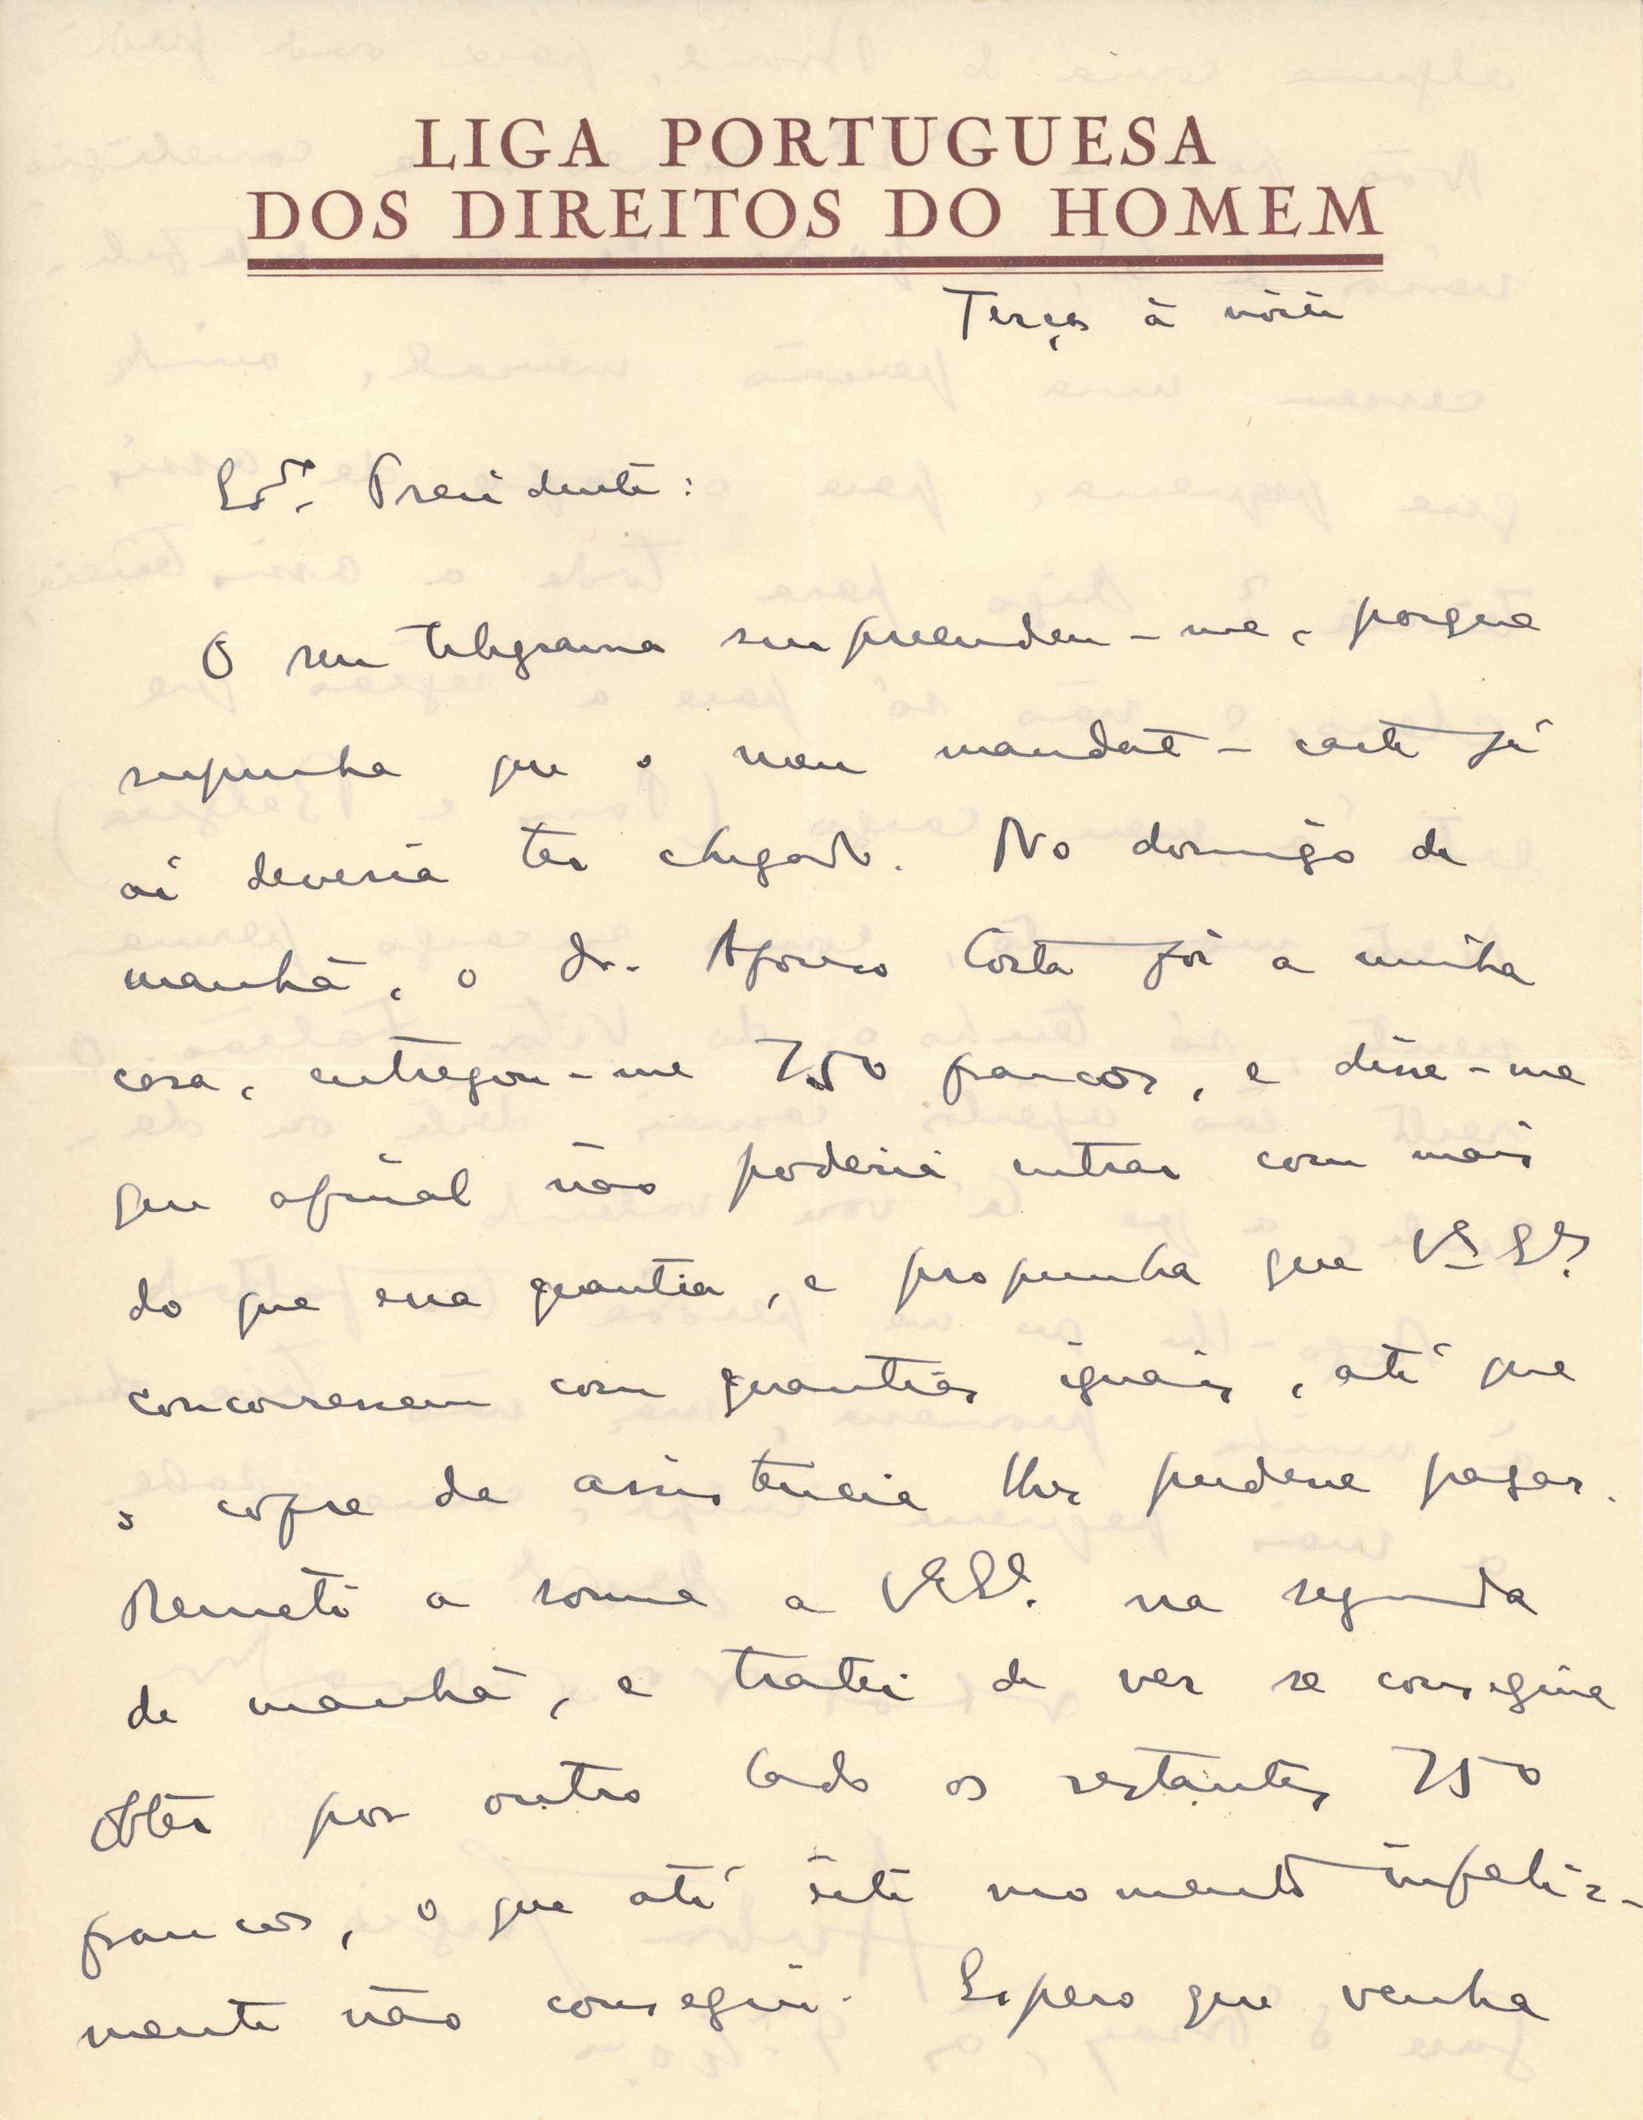 LIGA PORTUGUESA
DOS DIREITOS DO HOMEM
Terça à noite
Exº. Presidente:
O seu telegrama surpreendeu-me, porque
supunha que o meu mandat-carte já
aí deveria ter chegado. No domingo de
manhã, o dr. Afonso Costa foi a minha
casa, entregou-me 750 francos, e disse-me
que afinal não poderia entrar com mais
do que essa quantia, e propunha que V. Ex.
concorressem com quantias iguais, até que
o cofre da assistencia lhes pudesse pagar.
Remeti a soma a V. Ex. na segunda
de manhã, e tratei de ver se conseguia
obter por outro lado os restantes 750
francos, o que até êste momento infeliz-
mente não consegui. Espero que venha